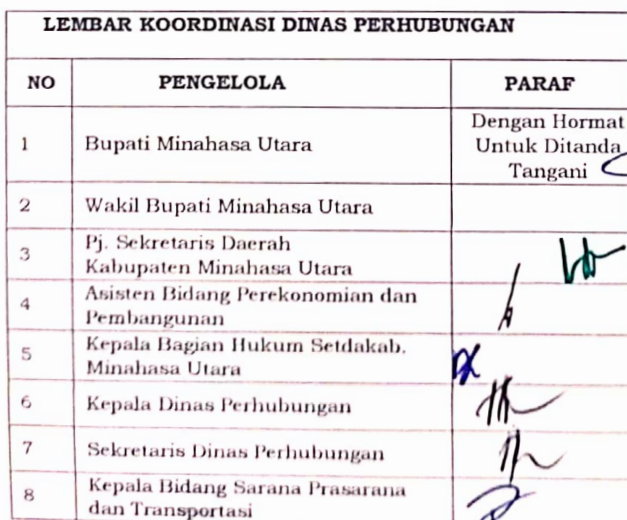 LEMBAR KOORDINASI DINAS PERHUBUNGAN
NO PENGELOLA PARAF
1 Bupati Minahasa Utara Dengan Hormat
Untuk Ditanda
Tangani
2 Wakil Bupati Minahasa Utara
3 Pj. Sekretaris Daerah
Kabupaten Minahasa Utara
4 Asisten Bidang Perekonomian dan
Pembangunan
5 Kepala Bagian Hukum Setdakab.
Minahasa Utara
6 Kepala Dinas Perhubungan
7 Sekretaris Dinas Perhubungan
8 Kepala Bidang Sarana Prasarana
dan Transportasi